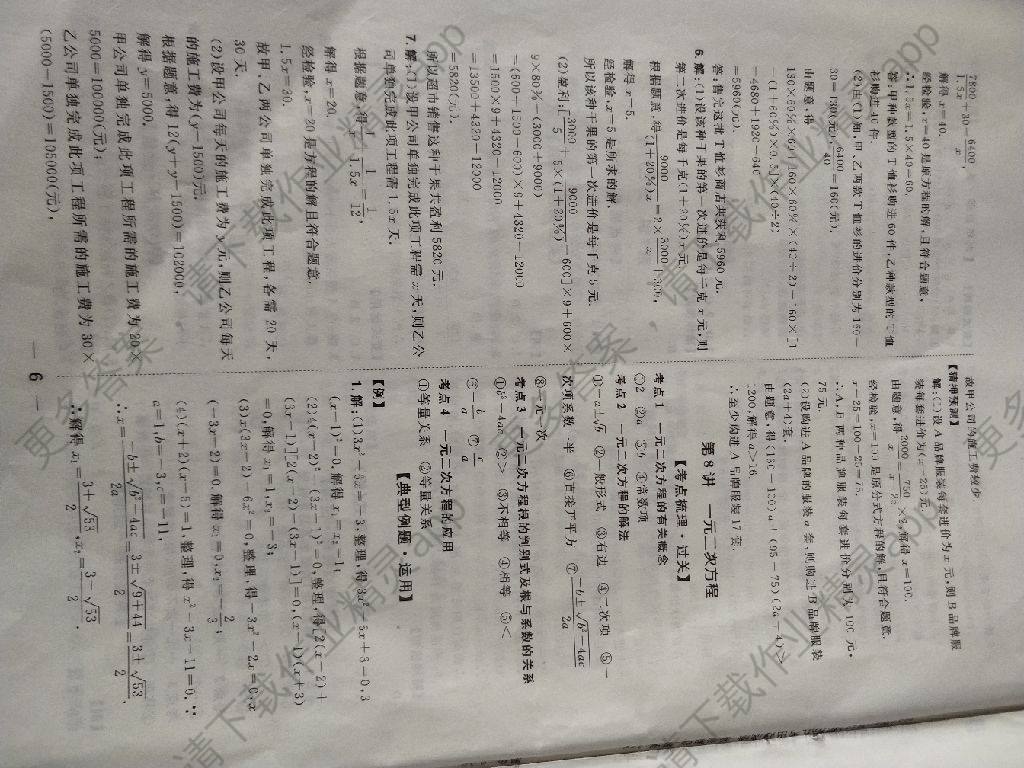 7800/1.5x+30=6400/x,
解得x=40.
经检验,x=40是原方程的解,且符合题意,
∴1.5x=1.5×40=60.
答:甲种款型的T恤衫购进60件,乙种款型的T恤
衫购进40件.
6400/40=160(元),
由题意,得
=4680+1920-640
=5960(元).
答:售完这批T恤衫商店共获利5960元.
6.解:(1)设该种干果的第一次进价是每千克x元,则
第二次进价是每千克(1+20%)x元.
根据题意,得9000/(1+20%)x=2×3000/x+300,
解得x=5.
经检验,x=5是所求的解.
所以该种干果的第一次进价是每千克5元.
(2)盈利:[3000/5+9000/5×(1+20%)-600]×9+600×
9×80%-(3000+9000)
=(600+1500-600)×9+4320-12000
=1500×9+4320-12000
=13500+4320-12000
=5820(元).
所以超市销售这种干果共盈利5820元.
7.解:(1)设甲公司单独完成此项工程需x天,则乙公
司单独完成此项工程需1.5x天,
根据题意,得1/x+1/1.5x=1/12,
解得x=20.
经检验,x=20是方程的解且符合题意.
1.5x=30.
故甲、乙两公司单独完成此项工程,各需20天,
30天.
(2)设甲公司每天的施工费为y元,则乙公司每天
的施工费为(y-1500)元.
根据题意,得12(y+y-1500)=102000,
解得y=5000.
甲公司单独完成此项工程所需的施工费为20×
5000=100000(元);
乙公司单独完成此项工程所需的施工费为30×
(5000-1500)=105000(元);
故甲公司的施工费较少.
【猜押预测】
解:(1)设A品牌服装每套进价为x元,则B品牌服
装每套进价为(x-25)元.
由题意,得2000/x=750/(x-25)×2,解得x=100.
经检验,x=100是原分式方程的解,且符合题意.
x-25=100-25=75.
∴A、B两种品牌服装每套进价分别为100元、
75元.
(2)设购进A品牌的服装a套,则购进B品牌服装
(2a+4)套,
由题意,得(130-100)a+(95-75)(2a+4)>
1200,解得a>16.
∴至少购进A品牌服装17套.
第8讲 一元二次方程
【考点梳理·过关】
考点1 一元二次方程的有关概念
①2 ②a ③b ④常数项
考点2 一元二次方程的解法
①-a±√b ②一般形式 ③右边 ④二次项 ⑤一
次项系数一半 ⑥直接开平方 ⑦(-b±√(b²-4ac))/2a
⑧一元一次
考点3 一元二次方程根的判别式及根与系数的关系
①b²-4ac ②> ③不相等 ④相等 ⑤<
⑥-b/a ⑦c/a
考点4 一元二次方程的应用
①等量关系 ②等量关系
【典型例题·运用】
【例】
1.解:(1)3x²-5x=x-3,整理,得:3x²-6x+3=0,3
(x-1)²=0,解得x₁=x₂=1;
(2)4(x-2)²-(3x-1)²=0,整理,得[2(x-2)+
(3x-1)][2(x-2)-(3x-1)]=0,(x-1)(x+3)
=0,解得x₁=1,x₂=-3;
(3)x(3x-2)-6x²=0,整理得-3x²-2x=0,x
(-3x-2)=0,解得x₁=0,x₂=-2/3;
(4)(x+2)(x-5)=1,整理得x²-3x-11=0,∵
a=1,b=-3,c=-11,
∴x=(-b±√(b²-4ac))/2a=(3±√(9+44))/2=(3±√53)/2,
∴解得x₁=(3+√53)/2,x₂=(3-√53)/2.
— 6 —
更多答案
请下载作业精灵app
更多答案
请下载作业精灵app